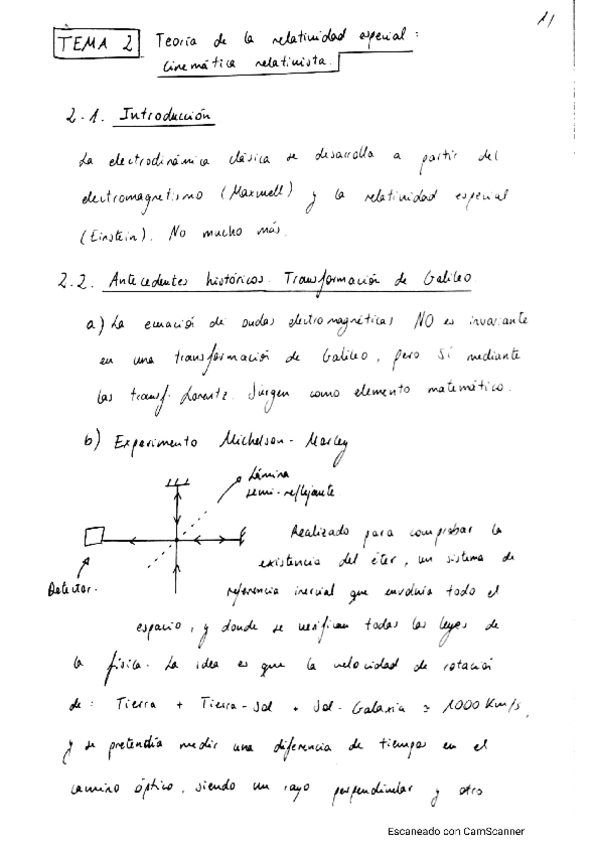 1/
TEMA 2 Teoría de la relatividad especial:
Cinemática relativista.
2.1. Introducción
La electrodinámica clásica se desarolla a partir del
electromagnetismo (Maxwell) y la relatividad especial
(Einstein). No mucho más.
2.2. Antecedentes históricos. Transformación de Galileo
a) La ecuación de ondas electromagnéticas NO es invariante
en una transformación de Galileo, pero SÍ mediante
las transf. Lorentz. Surgen como elemento matemático.
b) Experimento Michelson - Morley
Lámina
semi-reflejante
Detector.
Realizado para comprobar la
existencia del éter, un sistema de
referencia inercial que envolvía todo el
espacio, y donde se verifican todas las leyes de
la física. La idea es que la velocidad de rotación
de: Tierra + Tierra-Sol + Sol-Galaxia ≃ 1000 Km/s,
y se pretendía medir una diferencia de tiempos en el
camino óptico, siendo un rayo perpendicular y otro
Escaneado con CamScanner